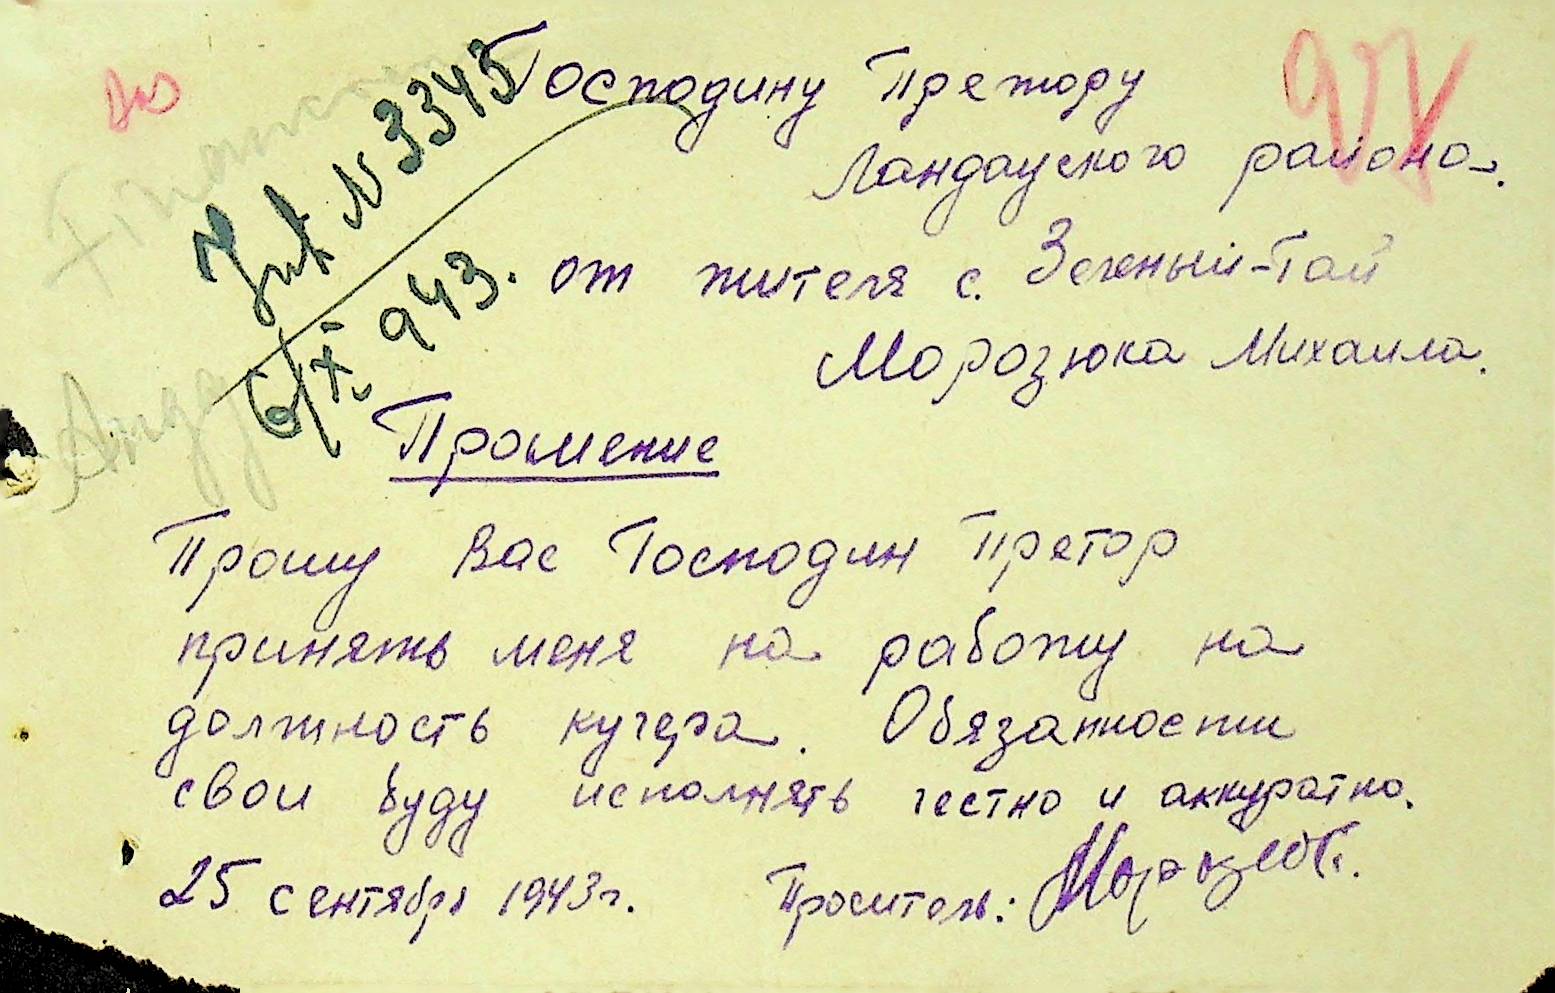 Господину Претору
Ландауского района.
от жителя с. Зеленый-Гай
Морозюка Михаила.
Int N 3343
6/X 943.
Прошение
Прошу Вас Господин Претор
принять меня на работу на
должность кучера. Обязанности
свои буду исполнять честно и аккуратно.
25 сентября 1943 г. Проситель: